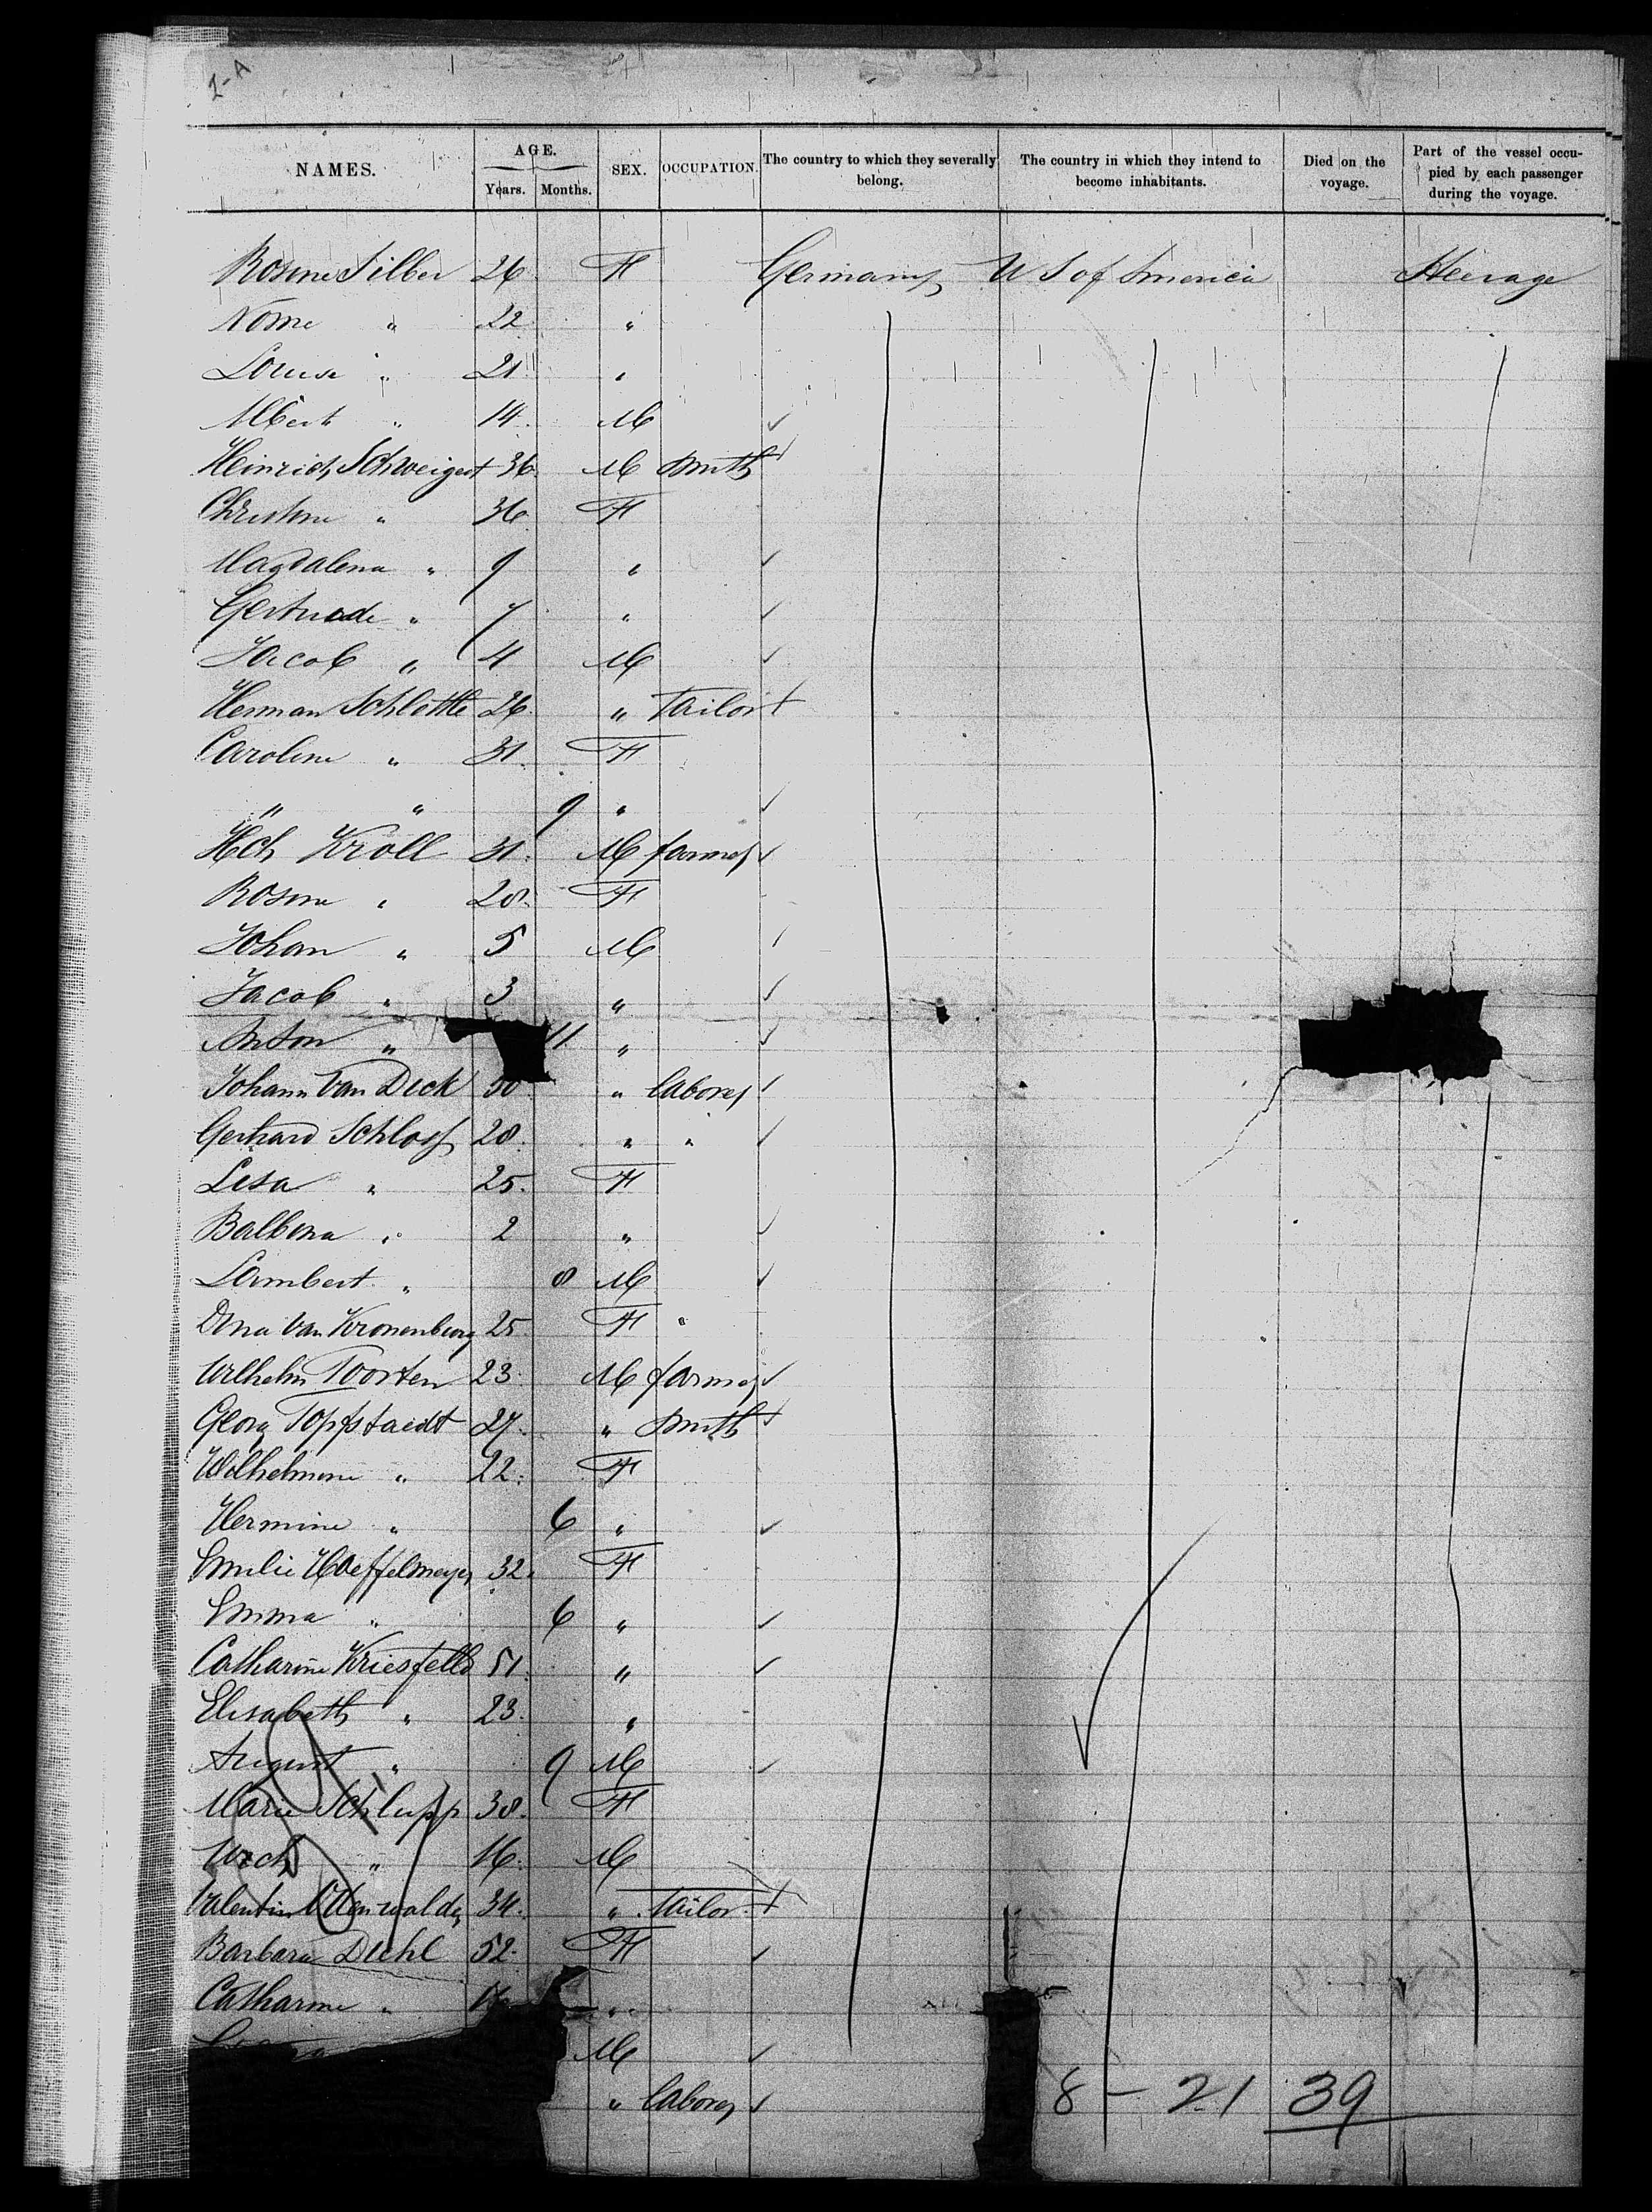 2-A
NAMES. AGE. Years. Months. SEX. OCCUPATION. The country to which they severally belong. The country in which they intend to become inhabitants. Died on the voyage. Part of the vessel occupied by each passenger during the voyage.
Rosine Silber 26 F Germany U S of America Steerage
" 22 "
Louise " 21 "
Albert " 14 M
Heinrich Schweigert 36 M Smith
Christine " 36 F
Magdalena " 9 "
Gertrude " 7 "
Jacob " 4 M
Herman Schlottle 26 " Tailor
Caroline " 31 F
" " 9 "
Hch Kroll 31 M farmer
Rosine " 28 F
Johan " 5 M
Jacob " 3 "
Anton " 11 "
Johann Van Deck 30 " laborer
Gerhard Schloss 28 " "
Lisa " 25 F
Balbina " 2 "
Lambert " 8 M
Dina Van Kronenburg 25 F "
Wilhelm Toorten 23 M farmer
Georg Topfstaedt 27 " Smith
Wilhelmine " 22 F
Hermine " 6 "
Emilie Haeffelmeyer 32 F
Emma " 6 "
Catharine Kriesfelld 51 "
Elisabeth " 23 "
August " 9 M
Marie Schlupp 38 F
" 16 M
Valentin 34 " Tailor
Barbara Diehl 52 F
Catharine " "
M
" laborer
8 - 21 39